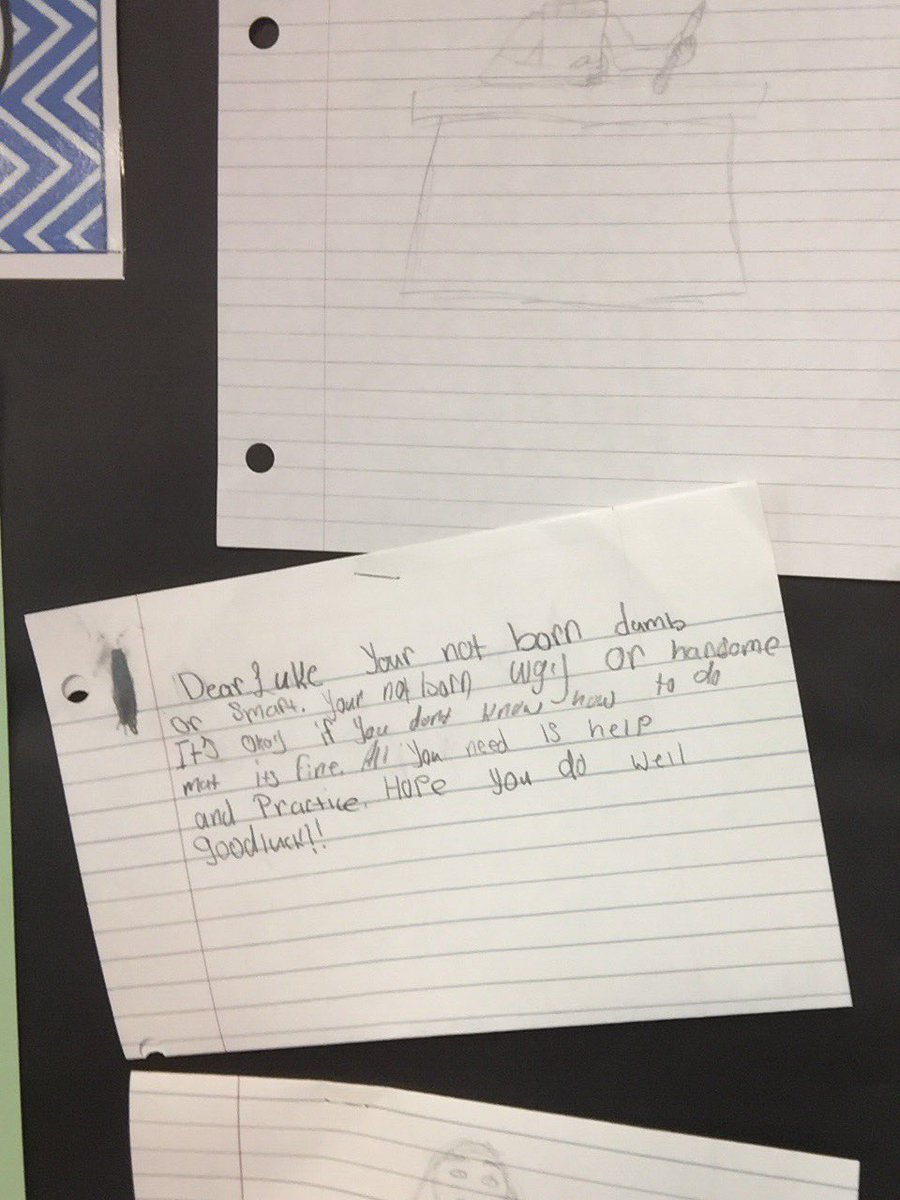 Dear Luke Your not born dumb
or smart. Your not born ugly or handsome
It's okay if you dont know how to do
mat its fine. All you need is help
and Practice. Hope you do well
goodluck!!